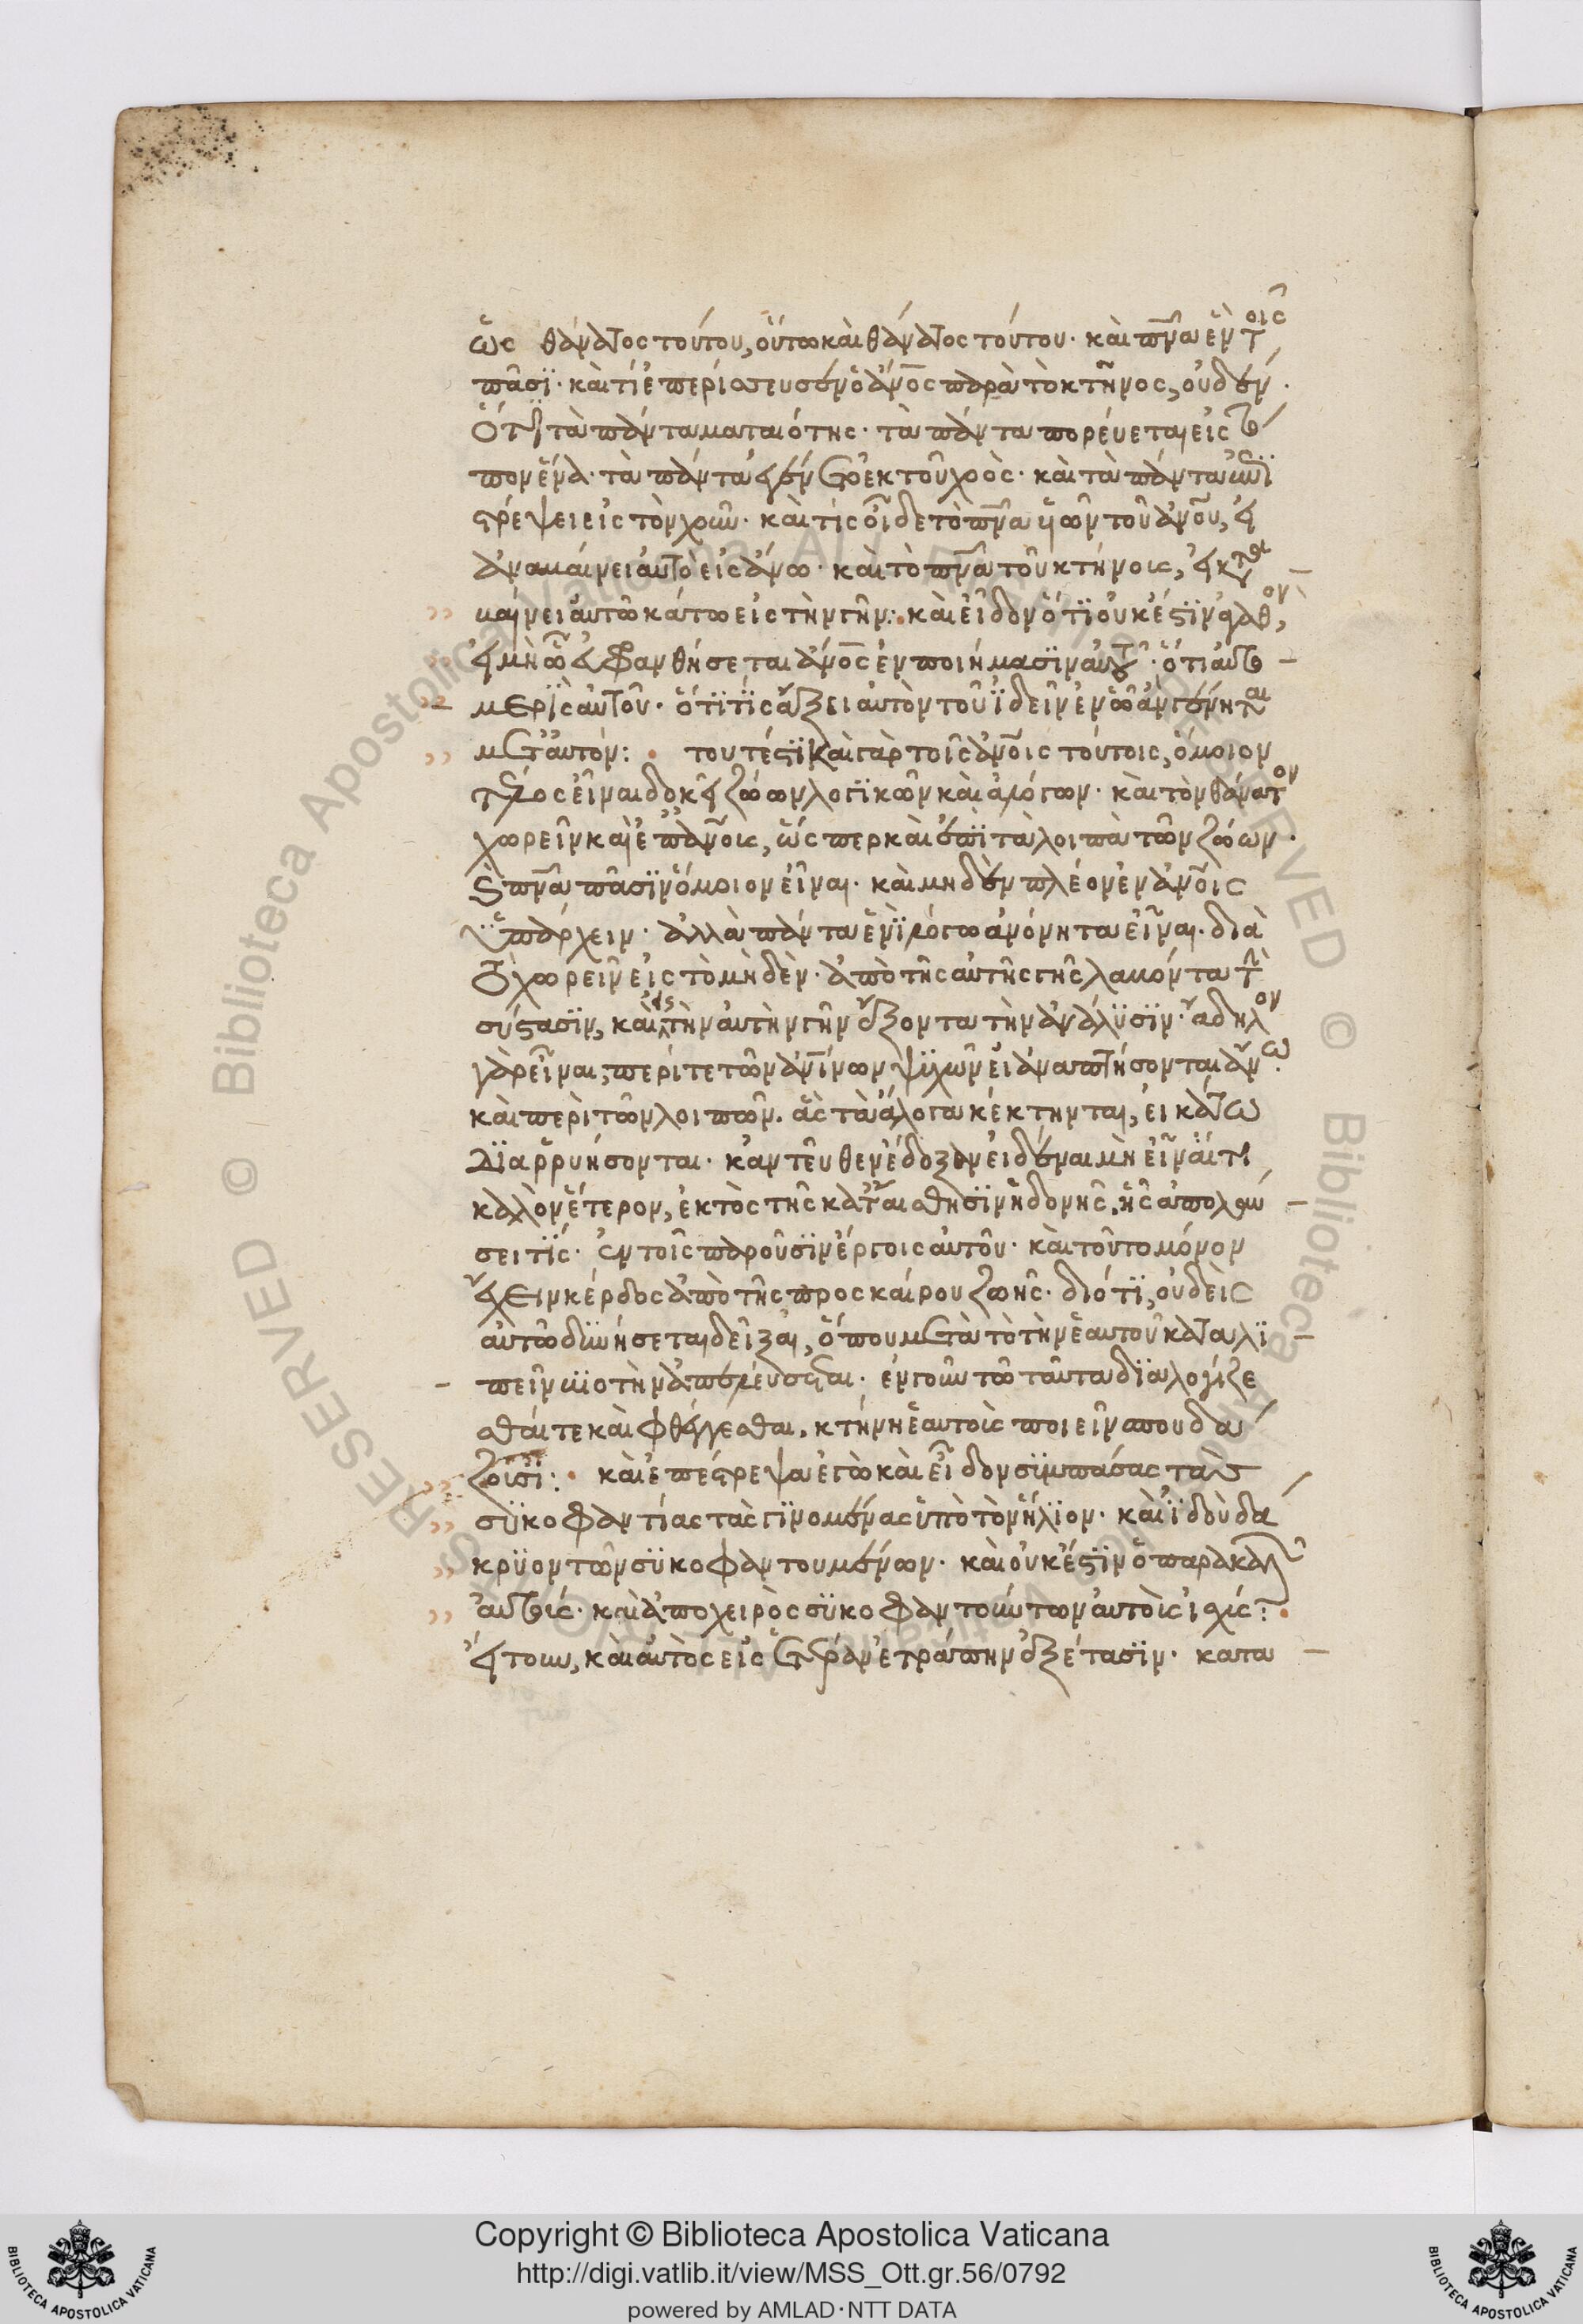 ὡς θάνατος τούτου, οὕτω καὶ θάνατος τούτου· καὶ πν̅α ἓν τοῖς
πᾶσϊ· καὶ τί ἐπερίσσευσεν ὁ ἄνο̅ς παρὰ τὸ κτῆνος, οὐδέν·
ὅτϊ τὰ πάντα ματαιότης· τὰ πάντα πορεύεται εἰς τό
πον ἕνα· τὰ πάντα ἐγένετο ἐκ τοῦ χοὸς· καὶ τὰ πάντα ἐπϊ
στρέψει εἰς τὸν χοῦν· καὶ τίς οἶδε τὸ πν̅α υἱῶν τοῦ ἀνο̅υ, εἰ
ἀναβαίνει αὐτὸ εἰς ἄνω· καὶ τὸ πν̅α τοῦ κτήνους, εἰ κατα
βαίνει αὐτὸ κάτω εἰς τὴν γῆν: καὶ εἶδον ὅτϊ οὐκ ἔστϊν ἀγαθὸν,
εἰ μὴ ὃ εὐφρανθήσεται ἄνο̅ς ἐν ποιήμασϊν αὐτοῦ· ὅτι αὐτὸ
μερὶς αὐτοῦ· ὅτϊ τίς ἄξει αὐτὸν τοῦ ἰδεῖν ἐν ᾧ ἂν γένηται
μετ' αὐτόν: τουτέστϊ καὶ γὰρ τοῖς ἀνο̅ις τούτοις, ὅμοιον
τέλος εἶναι δοκεῖ ζώων λογϊκῶν καὶ ἀλόγων· καὶ τὸν θάνατον
χωρεῖν καὶ ἐπ' ἀνο̅ις, ὥσπερ καὶ ἐπϊ τὰ λοιπὰ τῶν ζώων·
καὶ πν̅α πᾶσϊν ὅμοιον εἶναι· καὶ μηδὲν πλέον ἐν ἀνο̅ις
ὑπάρχειν· ἀλλὰ πάντα ἑνὶ λόγω ἀνόνητα εἶναι· διὰ
τὸ χωρεῖν εἰς τὸ μηδὲν· ἀπὸ τῆς αὐτῆς γῆς λαβόντα τὴν
σύστασϊν, καὶ εἰς τὴν αὐτὴν γῆν ἕξοντα τὴν ἀνάλϋσϊν· ἄδηλον
γὰρ εἶναι, περί τε τῶν ἀνίνων ψϋχῶν εἰ ἀναπτήσονται ἄνω·
καὶ περὶ τῶν λοιπῶν· ἃς τὰ ἄλογα κέκτηνται, εἰ κάτω
διαρρυήσονται· κἀντεῦθεν ἔδοξαν εἰδέναι μὴ εἶναί τι
καλὸν ἕτερον, ἐκτὸς τῆς κατ' αἴσθησϊν ἡδονῆς, ἧς ἀπολαύ
σει τϊς· ἐν τοῖς παροῦσϊν ἔργοις αὐτοῦ· καὶ τοῦτο μόνον
ἔχειν κέρδος ἀπὸ τῆς προσκαίρου ζωῆς· διότϊ, οὐδεὶς
αὐτῶ δϋνήσεται δεῖξαι, ὅπου μετὰ τὸ τὴν ἑαυτοῦ καταλϊ
πεῖν βϊοτὴν ἀπελεύσεται· ἐν γοῦν τῶ ταῦτα δϊαλογίζε
σθαί τε καὶ φθέγγεσθαι, κτήνη ἑαυτοὺς ποιεῖν σπουδά
ζουσϊ: καὶ ἐπέστρεψα ἐγὼ καὶ εἶδον σϋμπάσας τὰς
σϋκοφαντίας τὰς γϊνομένας ὑπὸ τὸν ἥλϊον· καὶ ἰδοὺ δά
κρϋον τῶν σϋκοφαντουμένων· καὶ οὐκ ἔστϊν ὁ παρακαλῶν
αὐτούς· καὶ ἀπὸ χειρὸς σϋκοφαντούντων αὐτοὺς ἰσχύς:
εἶτ' οὖν, καὶ αὐτὸς εἰς ἑτέραν ἐτράπην ἐξέτασϊν· κατα
Copyright © Biblioteca Apostolica Vaticana
http://digi.vatlib.it/view/MSS_Ott.gr.56/0792
powered by AMLAD · NTT DATA